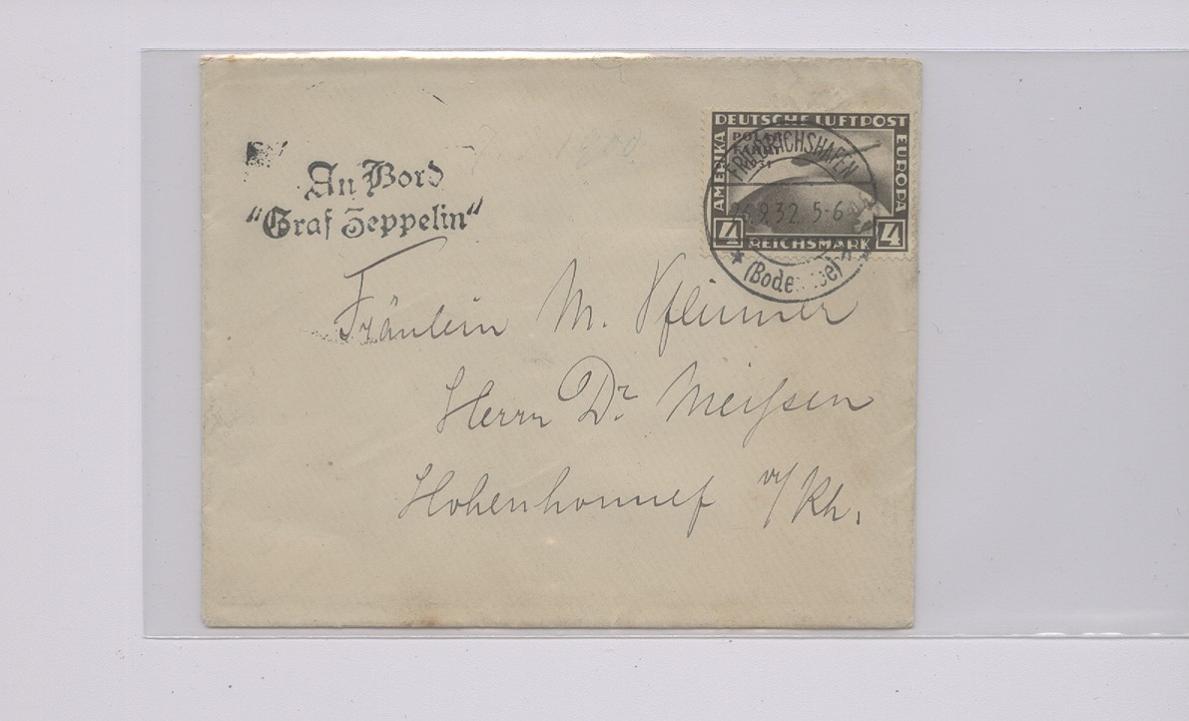 An Bord
"Graf Zeppelin"
DEUTSCHE LUFTPOST
AMERIKA
EUROPA
POLAR
FAHRT
4 REICHSMARK 4
FRIEDRICHSHAFEN
9.32. 5-6
(Bodensee)
Fräulein M.
Herrn Dr. Meißen
Hohenhonnef a/Rh.